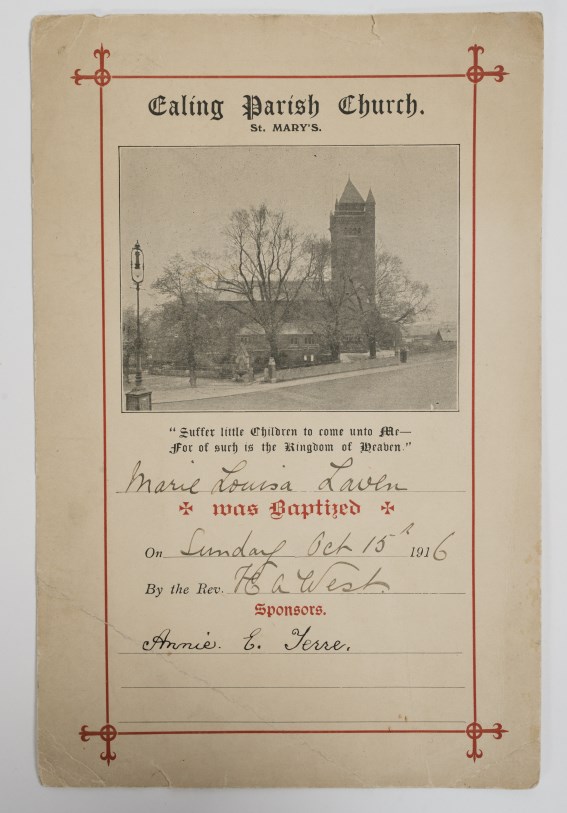 Ealing Parish Church.
St. MARY'S.
"Suffer little Children to come unto Me—
For of such is the Kingdom of Heaven."
Marie Louisa Laven
✠ was Baptized ✠
On Sunday Oct 15th 1916
By the Rev. H A West.
Sponsors.
Annie. E. Terre.